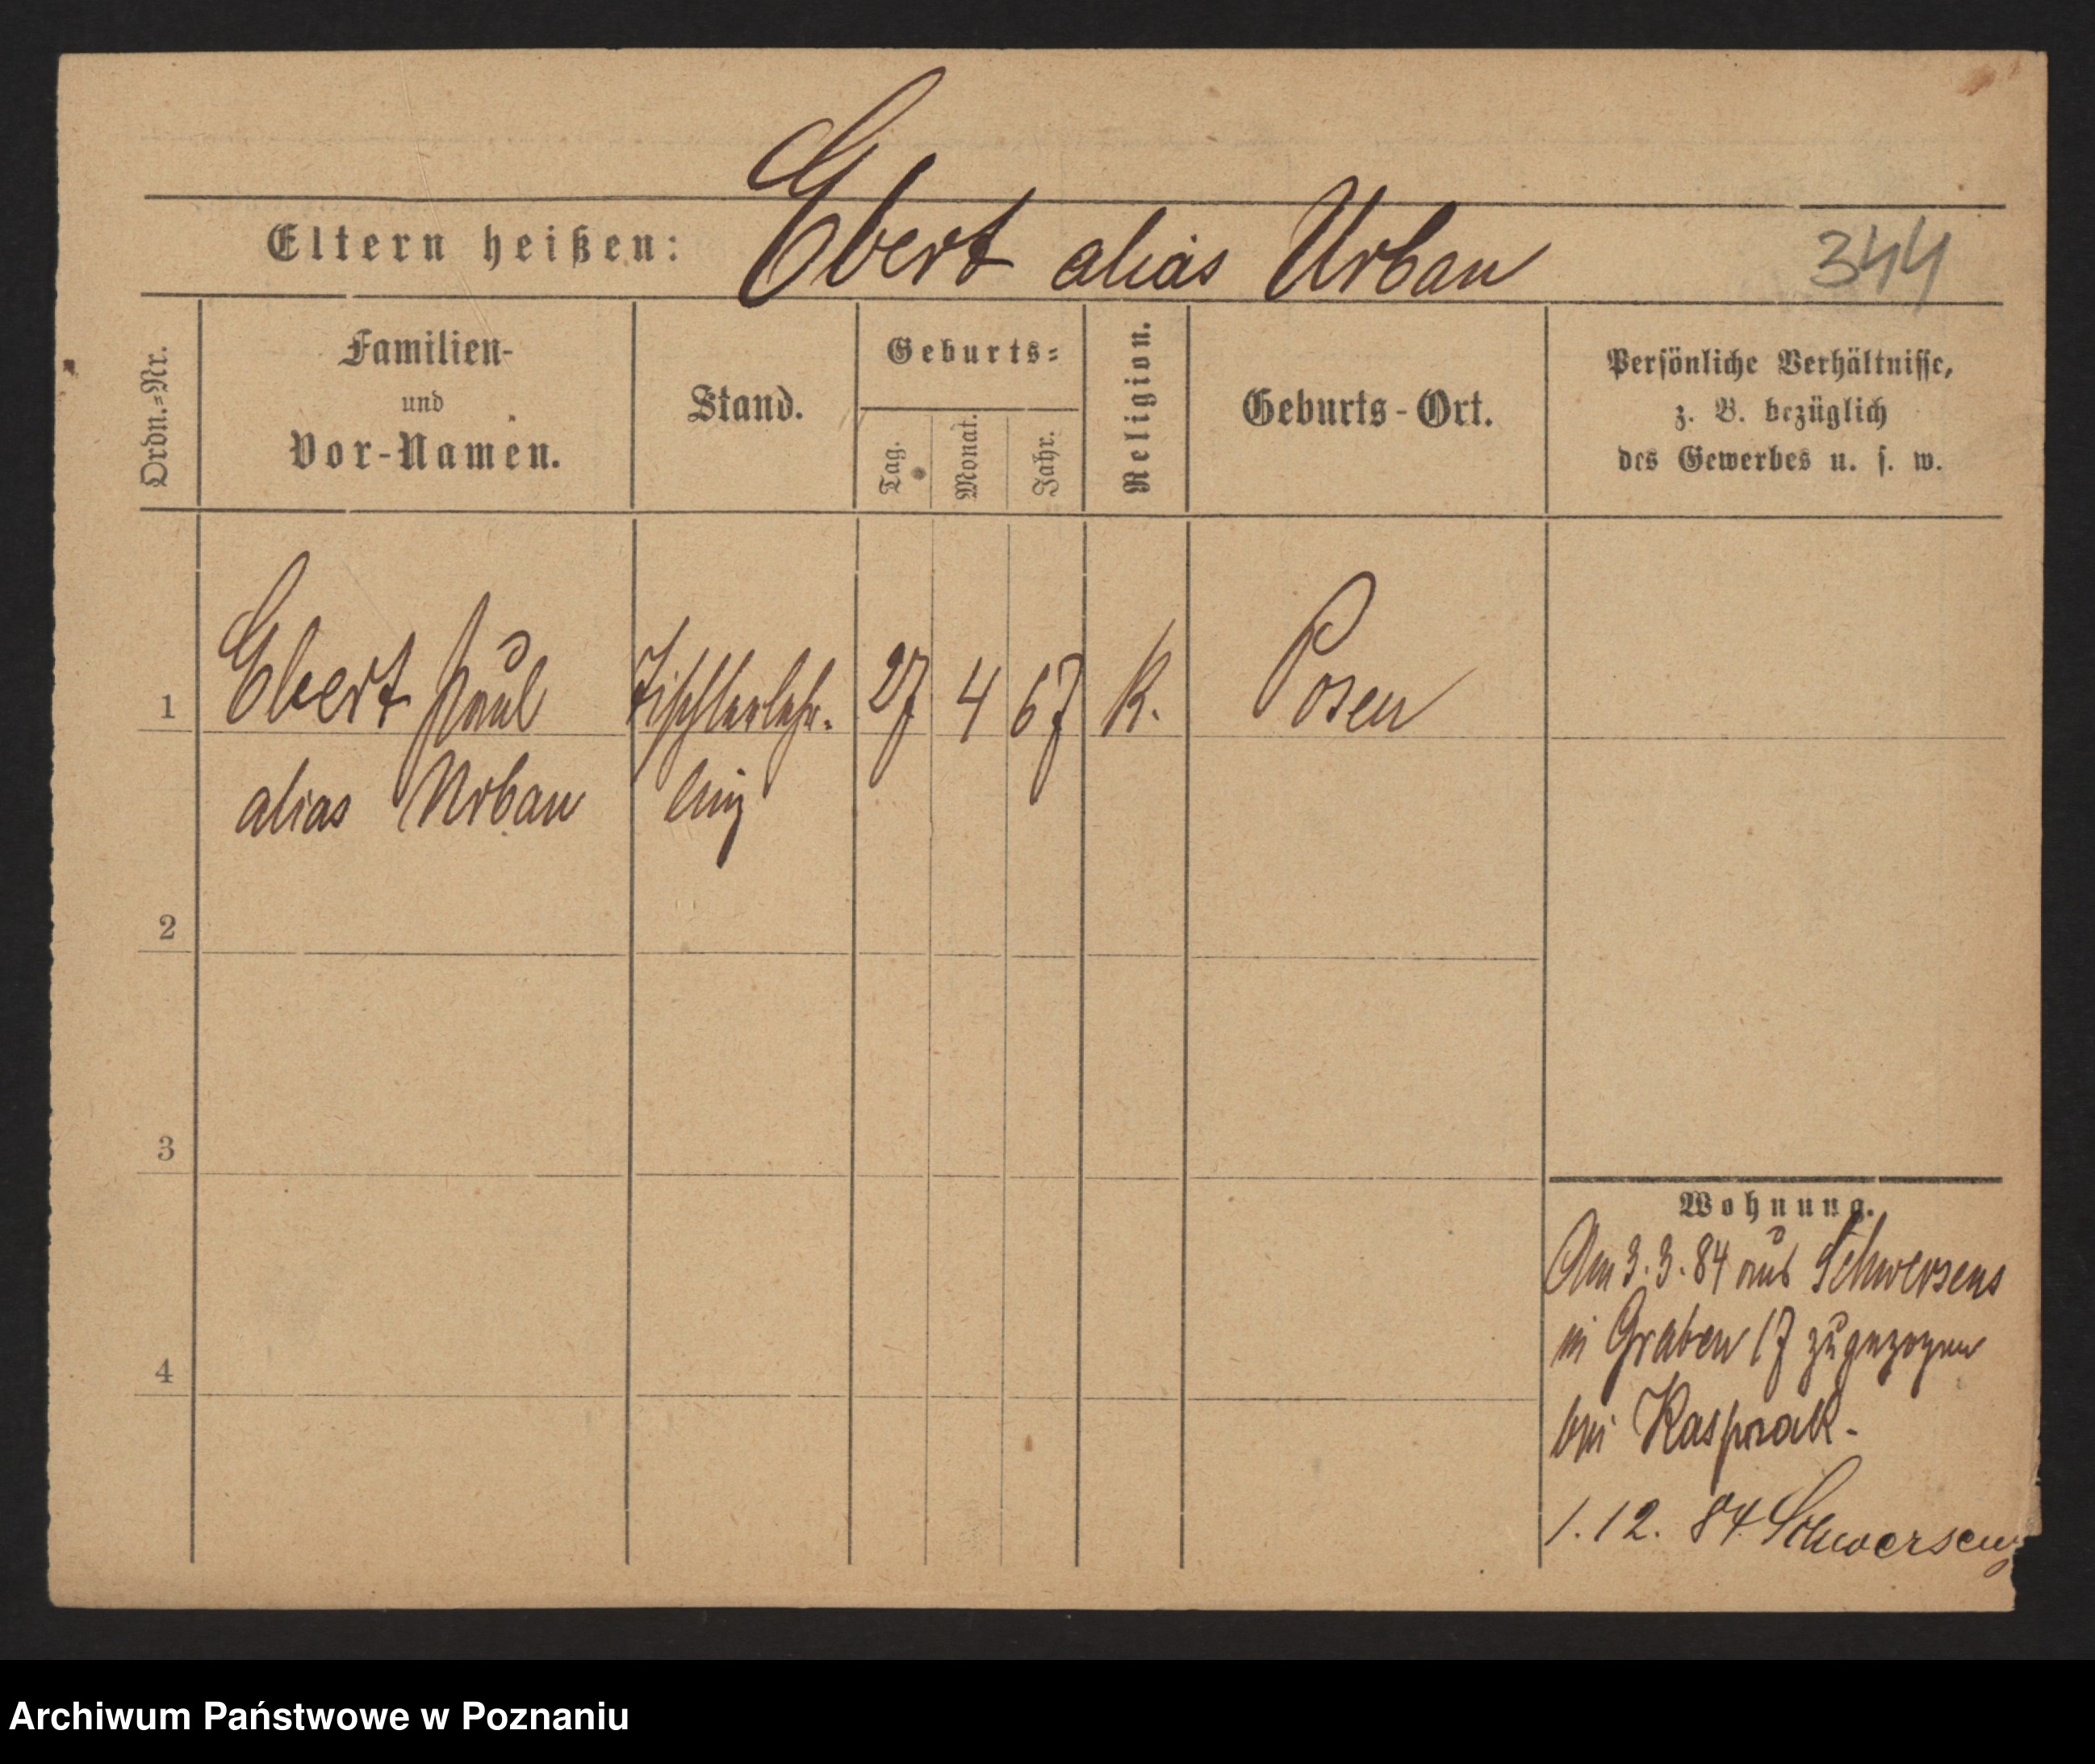 Eltern heißen: Ebert alias Urban 344
Ordn.=Nr.
Familien-
und
Vor-Namen.
Stand.
Geburts=
Tag.
Monat.
Jahr.
Religion.
Geburts-Ort.
Persönliche Verhältnisse,
z. B. bezüglich
des Gewerbes u. s. w.
1 Ebert Paul Tischlerlehr- 27 4 67 K. Posen
alias Urban ling
2
3
4
Wohnung.
Am 3.3.84 aus Schwersens
in Graben 17 zugezogen
bei Kasprzak.
1.12.84 Schwersenz
Archiwum Państwowe w Poznaniu